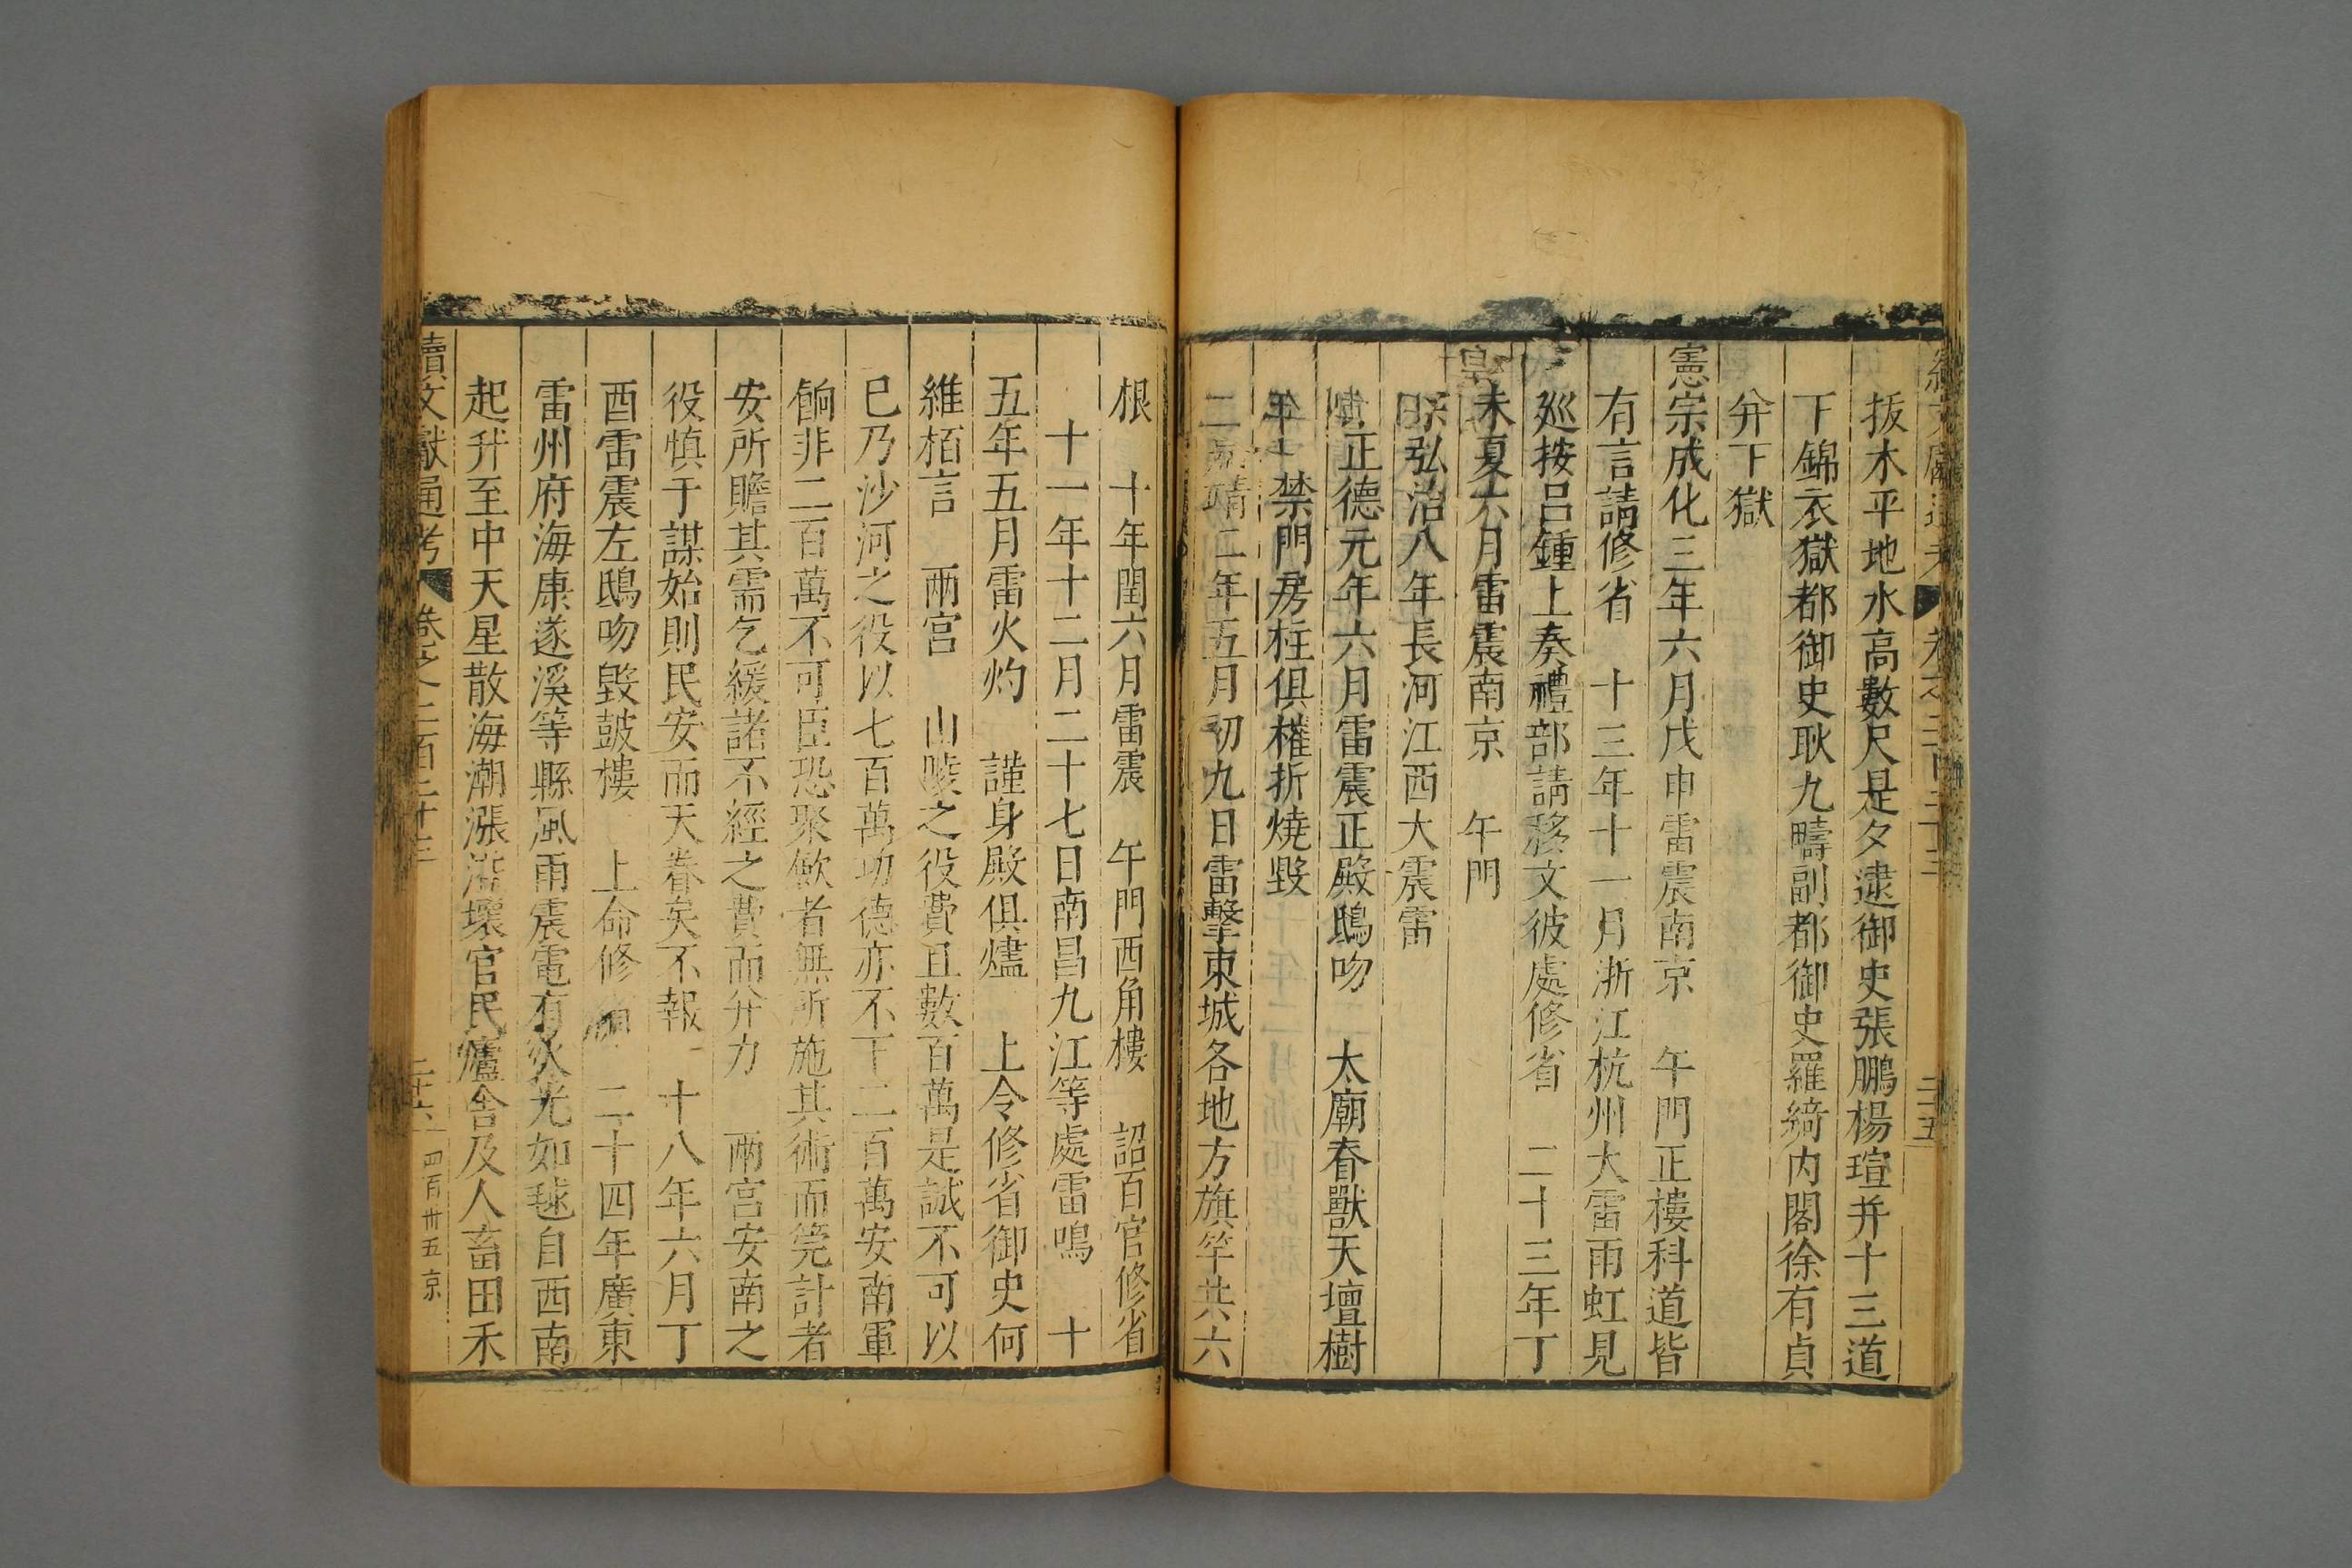 拔木平地水高數尺是夕逮御史張鵬楊瑄并十三道
下錦衣獄都御史耿九疇副都御史羅綺內閣徐有貞
并下獄
憲宗成化三年六月戊申雷震南京 午門正樓科道皆
有言請修省 十三年十一月浙江杭州大雷雨虹見
巡按呂鍾上奏禮部請移文彼處修省 二十三年丁
未夏六月雷震南京 午門
弘治八年長河江西大震雷
正德元年六月雷震正殿鴟吻 太廟脊獸天壇樹
禁門房柱俱摧折燒毀
靖二年五月初九日雷擊東城各地方旗竿共六
根 十年閏六月雷震 午門西角樓 詔百官修省
十一年十二月二十七日南昌九江等處雷鳴 十
五年五月雷火灼 謹身殿俱燼 上令修省御史何
維栢言 兩宮 山陵之役費且數百萬是誠不可以
已乃沙河之役以七百萬功德亦不下二百萬安南軍
餉非二百萬不可臣恐聚歛者無所施其術而筦計者
安所贍其需乞緩諸不經之費而并力 兩宮安南之
役慎于謀始則民安而天眷矣不報 十八年六月丁
酉雷震左鴟吻毀鼓樓 上命修 二十四年廣東
雷州府海康遂溪等縣風雨震電有火光如毬自西南
起升至中天星散海潮漲溢壞官民廬舍及人畜田禾
續文獻通考 卷之二百二十三 二十六 四百卅五 京